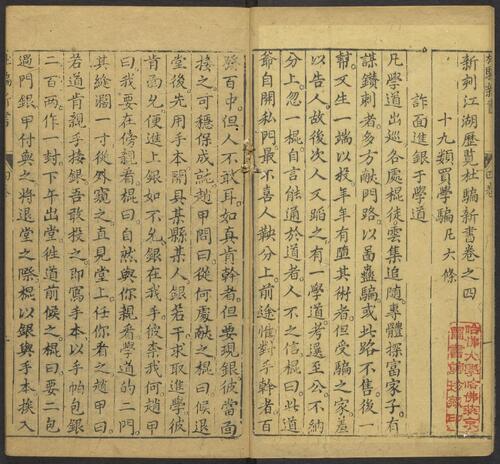 新刻江湖歷覽杜騙新書卷之四
十九類買學騙 凡六條
詐面進銀于學道
凡學道出巡各處棍徒雲集追隨專體探富家子有
謀鑽刺者多方獻門路以圖盡騙或此路不售後一
幫又生一端以投年年有墮其術者但受騙之家羞
以告人故後次人又蹈之有一學道考選至公不納
分上忽一棍自言能通於道者人不之信棍曰此道
爺自開私門最不喜人鞅分上前途惟對手幹者百
發百中但人不敢耳如真肯幹者但要現銀彼當面
接之可穩保成就趙甲問曰從何處獻之棍曰候退
堂後先用手本開具某縣某人銀若干求取進學彼
肯面允便進上銀如不允銀在我手彼柰我何趙甲
曰我要在傍親看棍曰自然與你親看學道的二門
其縫濶一寸從外窺之直見堂上任你看之趙甲曰
若道肯親手接銀吾敢投之即寫手本以手帕包銀
二百兩作一封下午出堂徃道前候之棍曰要二包
過門銀甲付與之將退堂之際棍以銀與手本挨入
杜騙新書
四卷
哈佛大學哈佛燕京
圖書館珍藏印